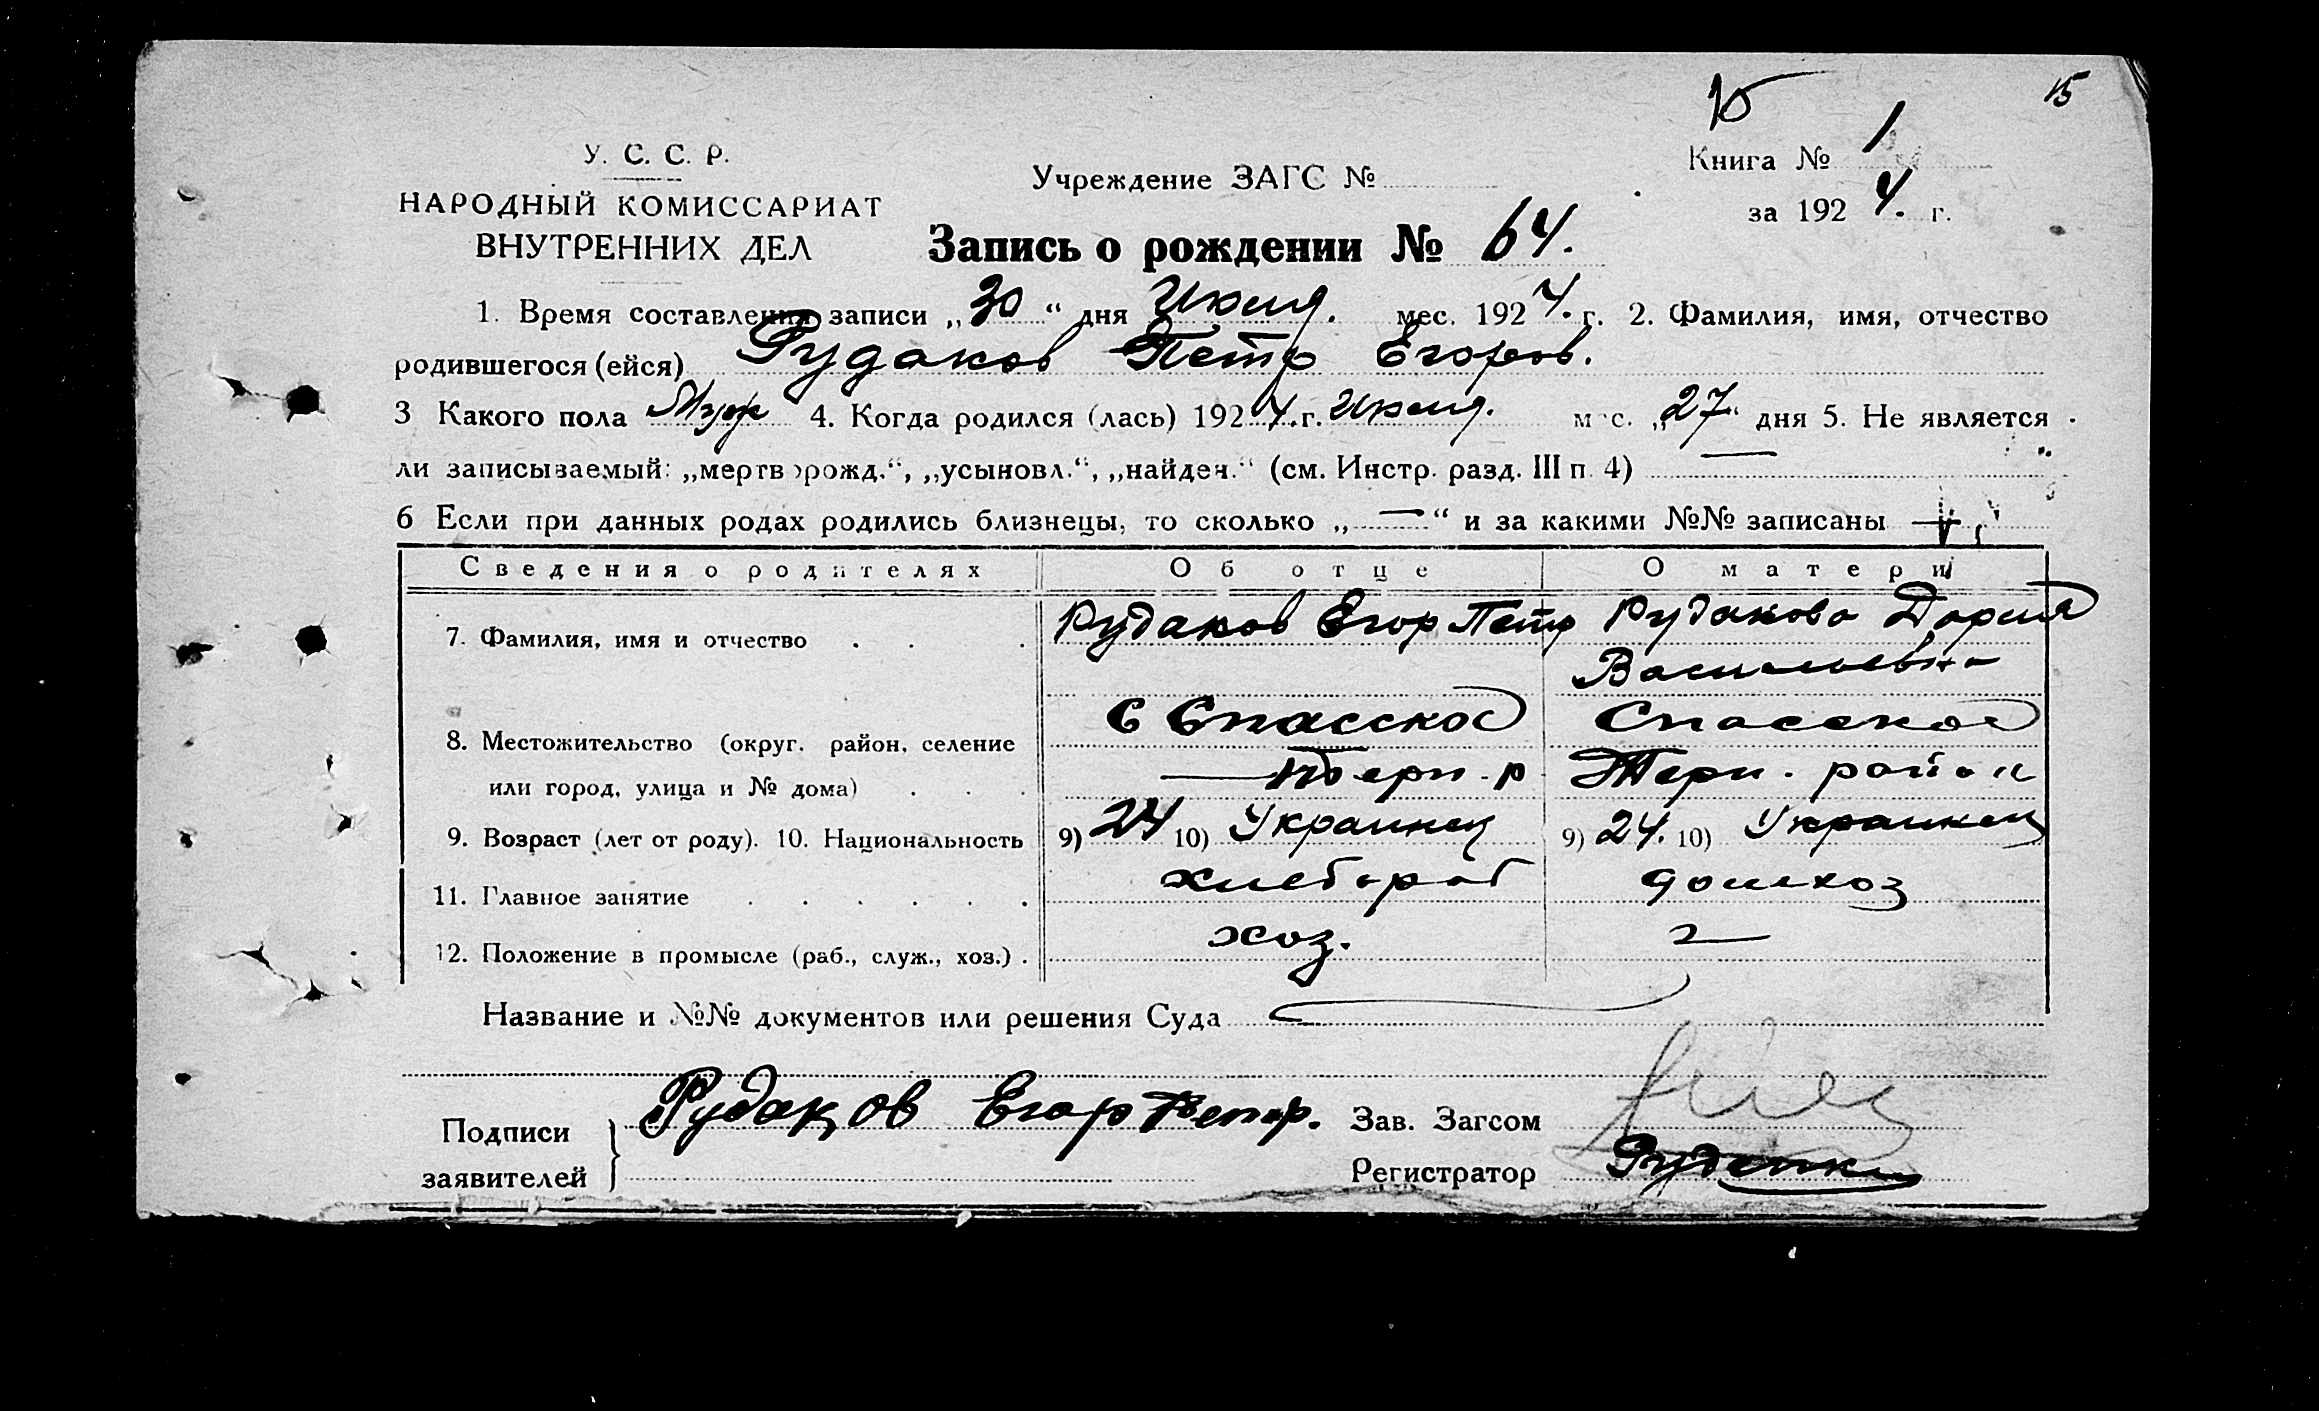 15
15
У. С. С. Р.
НАРОДНЫЙ КОМИССАРИАТ
ВНУТРЕННИХ ДЕЛ
Учреждение ЗАГС №
Книга № 1
за 1924. г.
Запись о рождении № 64.
1. Время составления записи „30“ дня Июля. мес. 1924. г. 2. Фамилия, имя, отчество
родившегося (ейся) Рудаков Петр Егоров.
3 Какого пола Муж 4. Когда родился (лась) 1924. г. Июля. мес. „27“ дня 5. Не является
ли записываемый: „мертворожд.“, „усыновл.“, „найден.“ (см. Инстр. разд. III п. 4) —
6 Если при данных родах родились близнецы, то сколько „—“ и за какими №№ записаны —
Сведения о родителях Об отце О матери
7. Фамилия, имя и отчество Рудаков Егор Петр Рудакова Дария
Васильевна
8. Местожительство (округ. район, селение С Спасское Спасское
или город, улица и № дома) Терн. р Терн. район
9. Возраст (лет от роду). 10. Национальность 9) 24 10) Украинец 9) 24. 10) Украинец
11. Главное занятие хлебороб домхоз
12. Положение в промысле (раб., служ., хоз.) хоз.
Название и №№ документов или решения Суда
Подписи заявителей Рудаков Егор Петр. Зав. Загсом
Регистратор